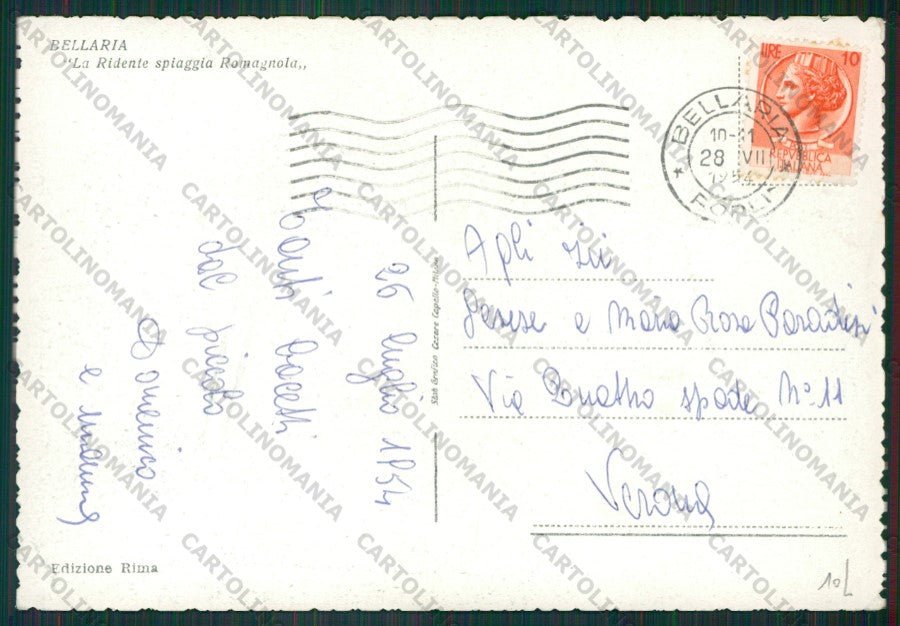 BELLARIA
"La Ridente spiaggia Romagnola,,
LIRE 10
REPVBBLICA
ITALIANA
BELLARIA
10-11
28 VII
1954
* FORLI *
26 luglio 1954
Tanti baceti
dal piccolo
Domenico
e mamma
Stab Grafico Cesare Capello-Milano
Agli zii
e Maria Rosa Paradisi
Via Quattro spade N° 11
Verona
Edizione Rima
10L
CARTOLINOMANIA